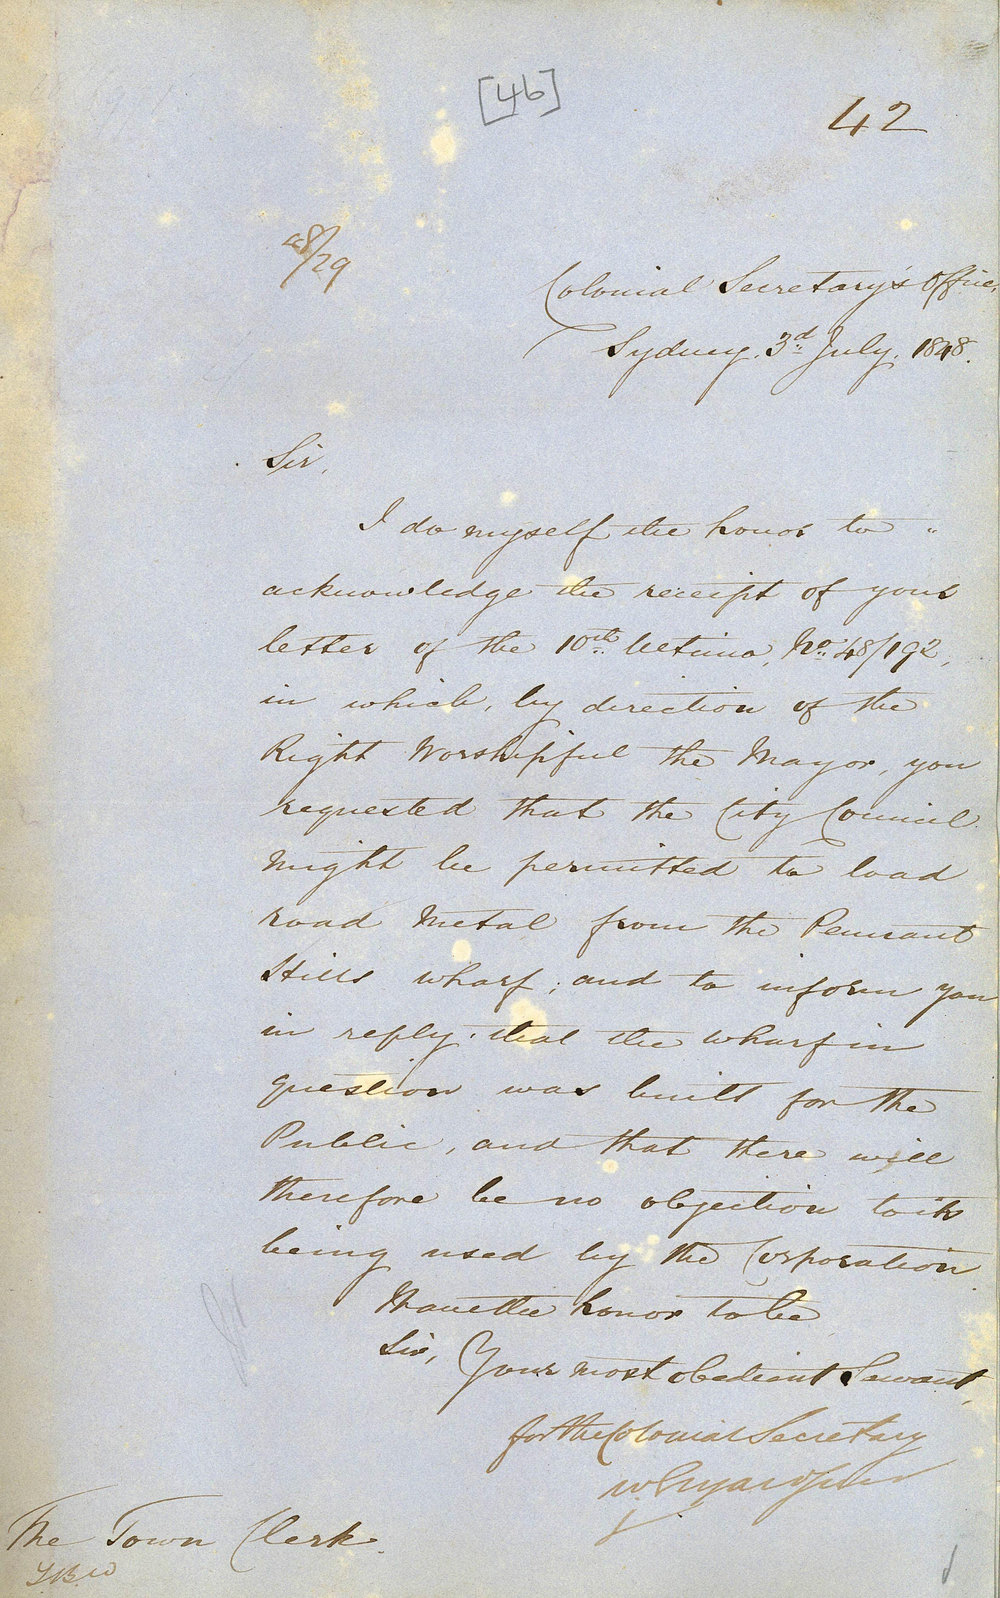 [46]
42
48/29
Colonial Secretary's Office,
Sydney. 3d July. 1848.
Sir,
I do myself the honor to "
acknowledge the receipt of your
letter of the 10th Ultimo, No. 48/192,
in which, by direction of the
Right Worshipful the Mayor, you
requested that the City Council
might be permitted to load
road Metal from the Pennant
Hills wharf; and to inform you
in reply, that the wharf in
question was built for the
Public, and that there will
therefore be no objection to its
being used by the Corporation
I have the honor to be
Sir, Your most obedient Servant,
for the Colonial Secretary
The Town Clerk.